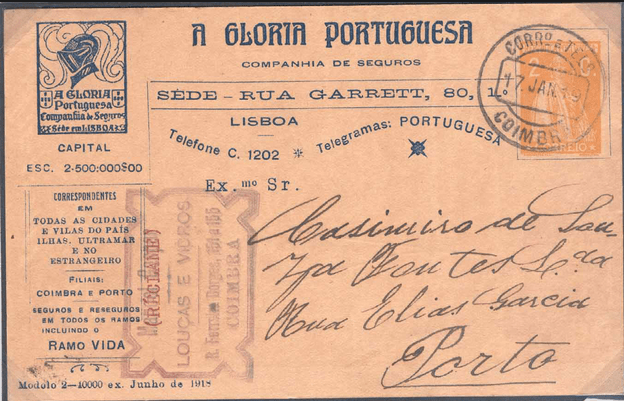 A GLORIA PORTUGUESA
COMPANHIA DE SEGUROS
SÉDE - RUA GARRETT, 80, 1.º
LISBOA
Telefone C. 1202 * Telegramas: PORTUGUESA
Ex.mo Sr.
A GLORIA
Portuguesa
Companhia de Seguros
Séde em LISBOA
CAPITAL
ESC. 2-500:000$00
CORRESPONDENTES
EM
TODAS AS CIDADES
E VILAS DO PAÍS
ILHAS, ULTRAMAR
E NO
ESTRANGEIRO
FILIAIS:
COIMBRA E PORTO
SEGUROS E RESEGUROS
EM TODOS OS RAMOS
INCLUINDO O
RAMO VIDA
Modelo 2-10000 ex. Junho de 1918
(RECLAME)
LOUÇAS E VIDROS
COIMBRA
CORREIOS
17 JAN
COIMBRA
2 C.
Casimiro de Sou-
za Fontes L.da
Rua Elias Garcia
Porto